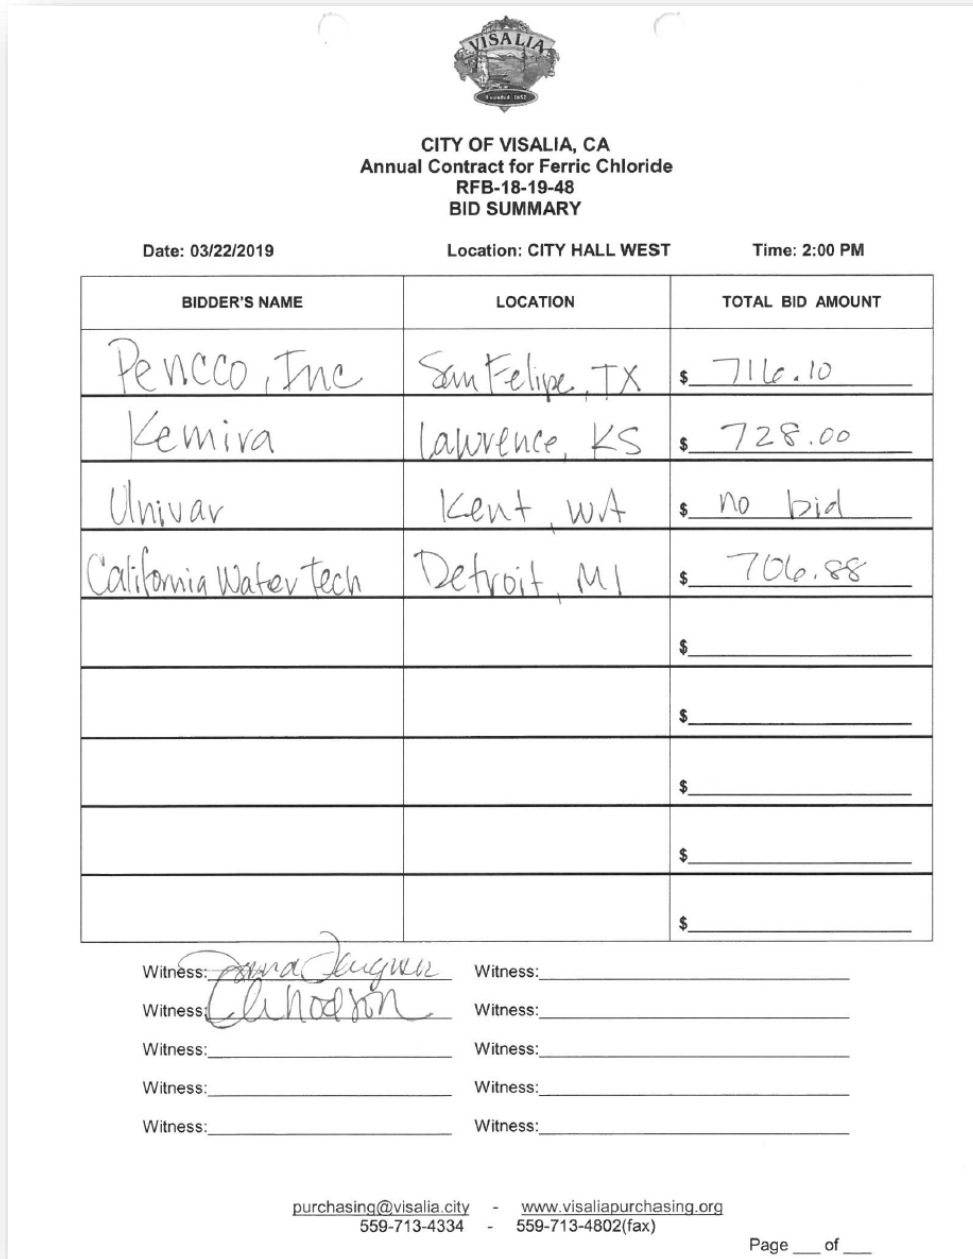 VISALIA
Founded 1852
CITY OF VISALIA, CA
Annual Contract for Ferric Chloride
RFB-18-19-48
BID SUMMARY
Date: 03/22/2019 Location: CITY HALL WEST Time: 2:00 PM
BIDDER'S NAME LOCATION TOTAL BID AMOUNT
Pencco, Inc San Felipe, TX $ 716.10
Kemira Lawrence, KS $ 728.00
Univar Kent, WA $ no bid
California Water Tech Detroit, MI $ 706.88
$
$
$
$
$
Witness: Witness:
Witness: Witness:
Witness: Witness:
Witness: Witness:
Witness: Witness:
purchasing@visalia.city - www.visaliapurchasing.org
559-713-4334 - 559-713-4802(fax)
Page ___ of ___